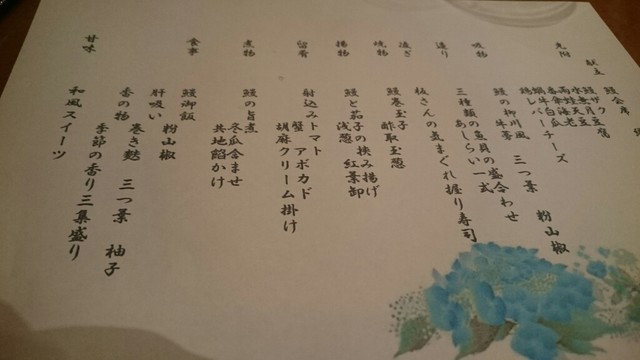 献立
鰻会席
先附
鰻ザク豆腐
水無月豆
小天豆
雨蛙海老
香年白瓜
蝸牛バーチーズ
鶏レバー
吸物
鰻の柳川風 三つ葉 粉山椒
牛蒡
造り
三種類の魚貝の盛合わせ
あしらい一式
凌ぎ
板さんの気まぐれ握り寿司
焼物
鰻巻玉子
酢取玉葱
揚物
鰻と茄子の挟み揚げ
浅葱 紅葉卸
留肴
射込みトマト
蟹 アボカド
胡麻クリーム掛け
煮物
鰻の旨煮
冬瓜含ませ
共地餡かけ
食事
鰻御飯
粉山椒
肝吸い
巻き麩 三つ葉 柚子
香の物
季節の香り三集盛り
甘味
和風スイーツ